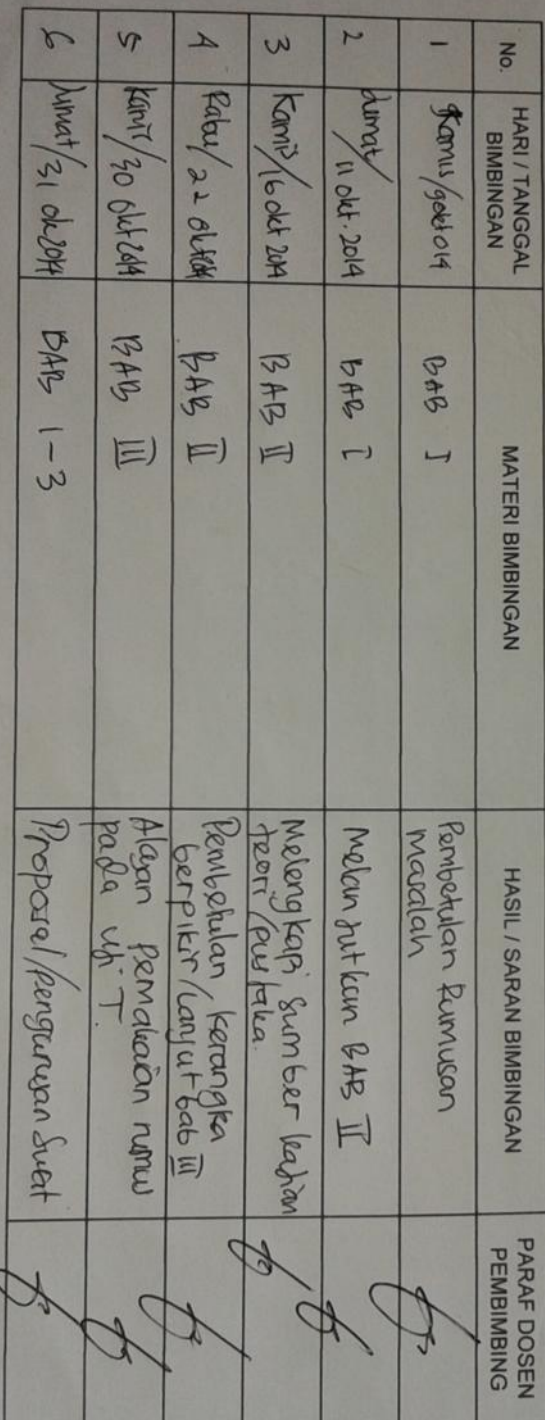 No. HARI / TANGGAL BIMBINGAN MATERI BIMBINGAN HASIL / SARAN BIMBINGAN PARAF DOSEN PEMBIMBING
1 Kamis/9okt014 BAB I Pembetulan Rumusan
masalah
2 Jumat/
11 okt. 2014 BAB I Melanjutkan BAB II
3 Kamis/16 okt 2014 BAB II Melengkapi Sumber kajian
teori/pustaka.
4 Rabu/22 okt2014 BAB II Pembetulan kerangka
berpikir/lanjut bab III
5 Kamis/30 okt 2014 BAB III Alasan Pemakaian rumus
pada uji T.
6 Jumat/31 okt2014 BAB 1-3 Proposal/Pengurusan Surat